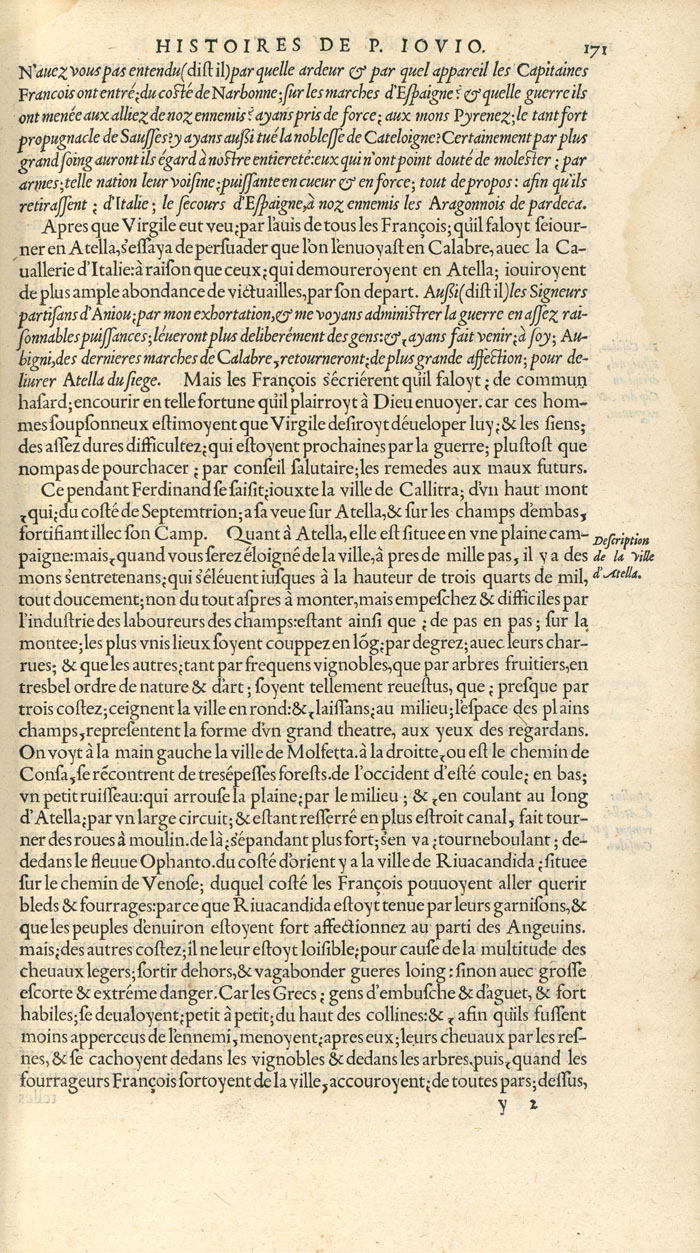 HISTOIRES DE P. IOVIO. 171
N'auez vous pas entendu (dist il) par quelle ardeur & par quel appareil les Capitaines
Francois ont entré; du costé de Narbonne; sur les marches d'Espaigne? & quelle guerre ils
ont menée aux alliez de noz ennemis? ayans pris de force; aux mons Pyrenez; le tant fort
propugnacle de Saulses? y ayans aussi tué la noblesse de Cateloigne? Certainement par plus
grand soing auront ils égard à nostre entiereté: eux qui n'ont point douté de molester ; par
armes; telle nation leur voisine; puissante en cueur & en force; tout de propos: afin qu'ils
retirassent ; d'Italie ; le secours d'Espaigne, à noz ennemis les Aragonnois de pardeca.
Apres que Virgile eut veu; par l'auis de tous les François; qu'il faloyt seiour-
ner en Atella, s'essaya de persuader que l'on l'enuoyast en Calabre, auec la Ca-
uallerie d'Italie: à raison que ceux; qui demoureroyent en Atella; iouiroyent
de plus ample abondance de victuailles, par son depart. Aussi (dist il) les Signeurs
partisans d'Aniou; par mon exhortation, & me voyans administrer la guerre en assez rai-
sonnables puissances; léueront plus deliberément des gens: & , ayans fait venir; à soy; Au-
bigni, des dernieres marches de Calabre, retourneront; de plus grande affection; pour de-
liurer Atella du siege. Mais les François s'écriérent qu'il faloyt ; de commun
hasard; encourir en telle fortune qu'il plairroyt à Dieu enuoyer. car ces hom-
mes soupsonneux estimoyent que Virgile desiroyt déueloper luy; & les siens;
des assez dures difficultez; qui estoyent prochaines par la guerre; plustost que
nompas de pourchacer ; par conseil salutaire; les remedes aux maux futurs.
Ce pendant Ferdinand se saisit; iouxte la ville de Callitra; d'vn haut mont
, qui; du costé de Septemtrion; a sa veue sur Atella, & sur les champs d'embas,
fortifiant illec son Camp. Quant à Atella, elle est situee en vne plaine cam-
paigne: mais, quand vous serez éloigné de la ville, à pres de mille pas, il y a des
mons s'entretenans; qui s'éléuent iusques à la hauteur de trois quarts de mil,
tout doucement; non du tout aspres à monter, mais empeschez & difficiles par
l'industrie des laboureurs des champs: estant ainsi que ; de pas en pas ; sur la
montee; les plus vnis lieux soyent couppez en lóg; par degrez; auec leurs char-
rues; & que les autres; tant par frequens vignobles, que par arbres fruitiers, en
tresbel ordre de nature & d'art ; soyent tellement reuestus, que ; presque par
trois costez; ceignent la ville en rond: & , laissans; au milieu; l'espace des plains
champs, representent la forme d'vn grand theatre, aux yeux des regardans.
On voyt à la main gauche la ville de Molfetta. à la droitte, ou est le chemin de
Consa, se récontrent de tresépesses forests. de l'occident d'esté coule; en bas;
vn petit ruisseau: qui arrouse la plaine; par le milieu ; & , en coulant au long
d'Atella; par vn large circuit; & estant resserré en plus estroit canal, fait tour-
ner des roues à moulin. de là; s'épandant plus fort; s'en va ; tourneboulant ; de-
dedans le fleuue Ophanto. du costé d'orient y a la ville de Riuacandida ; situee
sur le chemin de Venose; duquel costé les François pouuoyent aller querir
bleds & fourrages: parce que Riuacandida estoyt tenue par leurs garnisons, &
que les peuples d'enuiron estoyent fort affectionnez au parti des Angeuins.
mais; des autres costez; il ne leur estoyt loisible; pour cause de la multitude des
cheuaux legers; sortir dehors, & vagabonder gueres loing: sinon auec grosse
escorte & extréme danger. Car les Grecs ; gens d'embusche & d'aguet, & fort
habiles; se deualoyent; petit à petit; du haut des collines: & , afin qu'ils fussent
moins apperceus de l'ennemi, menoyent; apres eux; leurs cheuaux par les res-
nes, & se cachoyent dedans les vignobles & dedans les arbres. puis, quand les
fourrageurs François sortoyent de la ville, accouroyent; de toutes pars; dessus,
y 2
Description
de la ville
d'Atella.